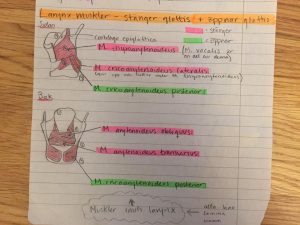 Larynx muskler - stänger glottis / + öppnar glottis
= stänger
= öppnar
cartilago epiglottica
M. thyroarytenoideus (M. vocalis är
en del av denna)
M. cricoarytenoideus lateralis
M. cricoarytenoideus posterior
Bak
M. arytenoideus obliquus
M. arytenoideus transversus
M. cricoarytenoideus posterior
Muskler inuti larynx
alla utom